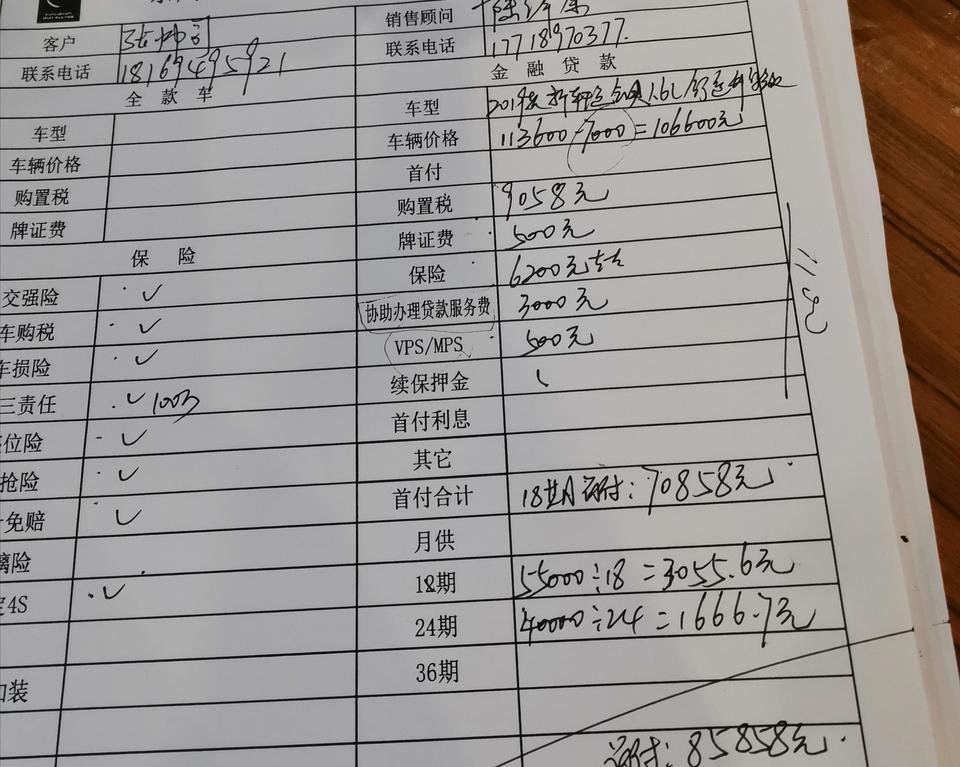 销售顾问
客户
联系电话 17718970377.
联系电话 18169495921
全款车
金融贷款
车型
车型 2019款
车辆价格
车辆价格 113600-7000=106600元
首付
购置税
购置税 9058元
牌证费
牌证费 500元
保险
保险 6200元左右
交强险 ✓
协助办理贷款服务费 3000元
车购税 ✓
VPS/MPS 500元
车损险 ✓
续保押金
三责任 ✓ 100万
首付利息
位险 ✓
其它
抢险 ✓
首付合计 18期 首付:70858元
免赔 ✓
月供
璃险
18期 55000÷18=3055.6元
4S ✓
24期 40000÷24=1666.7元
36期
加装
首付:85858元.